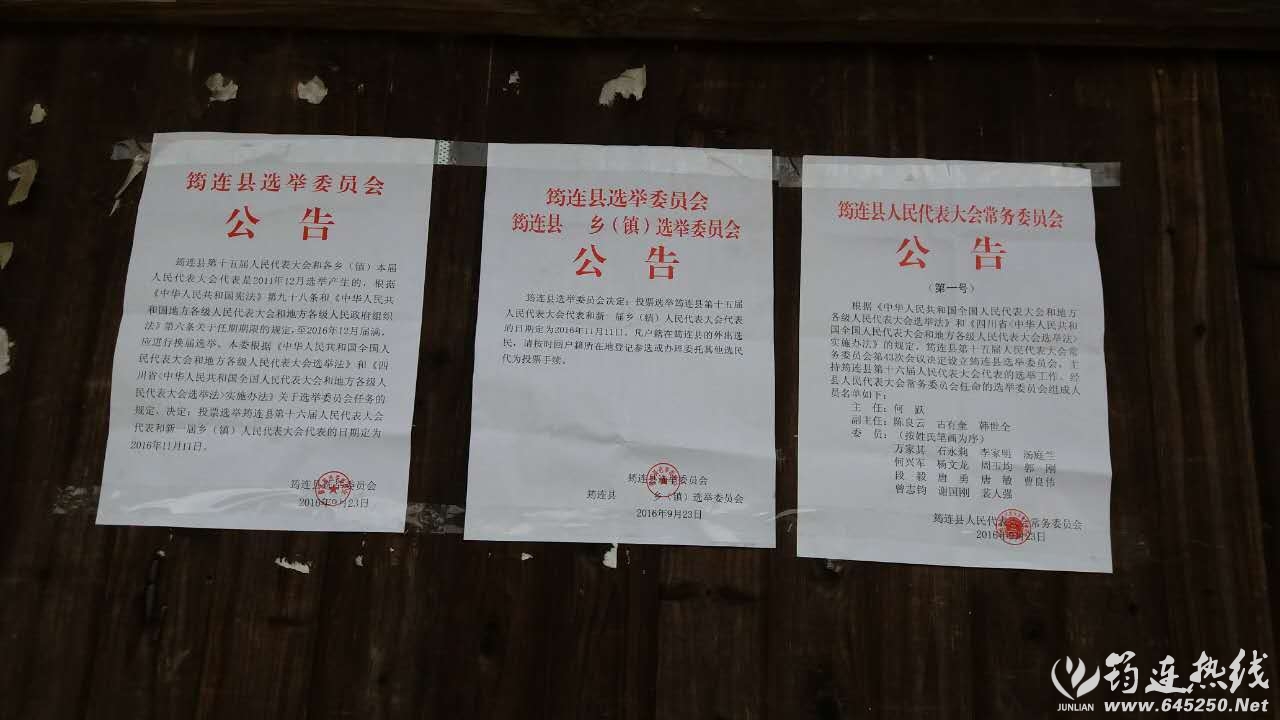 筠连县选举委员会
公 告
筠连县第十五届人民代表大会和各乡(镇)本届
人民代表大会代表是2011年12月选举产生的,根据
《中华人民共和国宪法》第九十八条和《中华人民共
和国地方各级人民代表大会和地方各级人民政府组织
法》第六条关于任期期限的规定,至2016年12月届满,
应进行换届选举。本委根据《中华人民共和国全国人
民代表大会和地方各级人民代表大会选举法》和《四
川省<中华人民共和国全国人民代表大会和地方各级人
民代表大会选举法>实施办法》关于选举委员会任务的
规定,决定:投票选举筠连县第十六届人民代表大会
代表和新一届乡(镇)人民代表大会代表的日期定为
2016年11月11日。
筠连县选举委员会
2016年9月23日
筠连县选举委员会
筠连县 乡(镇)选举委员会
公 告
筠连县选举委员会决定:投票选举筠连县第十五届
人民代表大会代表和新一届乡(镇)人民代表大会代表
的日期定为2016年11月11日。凡户籍在筠连县的外出选
民,请按时回户籍所在地登记参选或办理委托其他选民
代为投票手续。
筠连县选举委员会
筠连县 乡(镇)选举委员会
2016年9月23日
筠连县人民代表大会常务委员会
公 告
(第一号)
根据《中华人民共和国全国人民代表大会和地方
各级人民代表大会选举法》和《四川省<中华人民共和
国全国人民代表大会和地方各级人民代表大会选举法>
实施办法》的规定,筠连县第十五届人民代表大会常
务委员会第43次会议决定设立筠连县选举委员会,主
持筠连县第十六届人民代表大会代表的选举工作。经
县人民代表大会常务委员会任命的选举委员会组成人
员名单如下:
主 任:何 跃
副主任:陈良云 古有奎 韩世全
委 员:(按姓氏笔画为序)
万家其 石永莉 李家明 汤庭兰
何兴军 杨文龙 周玉均 郭 刚
段 毅 唐 勇 唐 敏 曹良伟
曾志钧 谢国刚 裴人强
筠连县人民代表大会常务委员会
2016年9月23日
筠连热线
JUNLIAN www.645250.Net